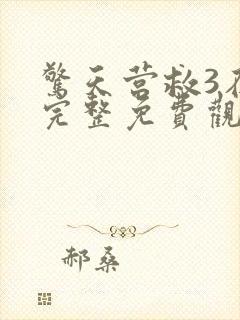 驚天营救3在
完整免費觀
郝桑